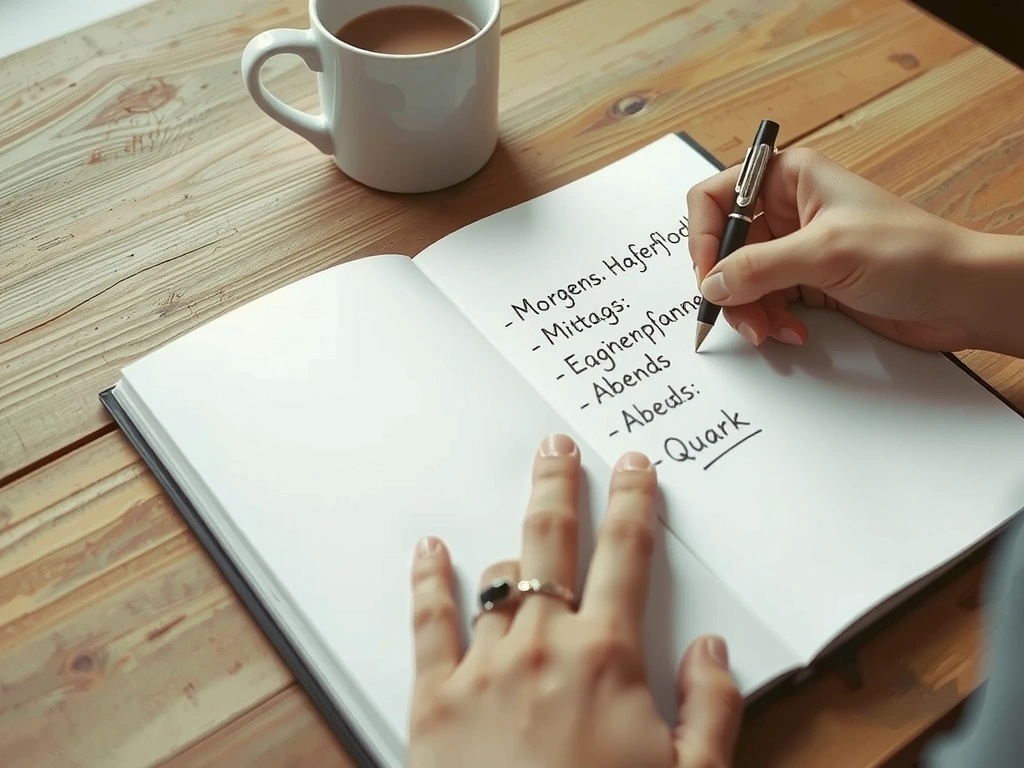 - Morgens. Haferflod
- Mittags:
- Eagnenpfanne
- Abends
- Abeuls:
- Quark